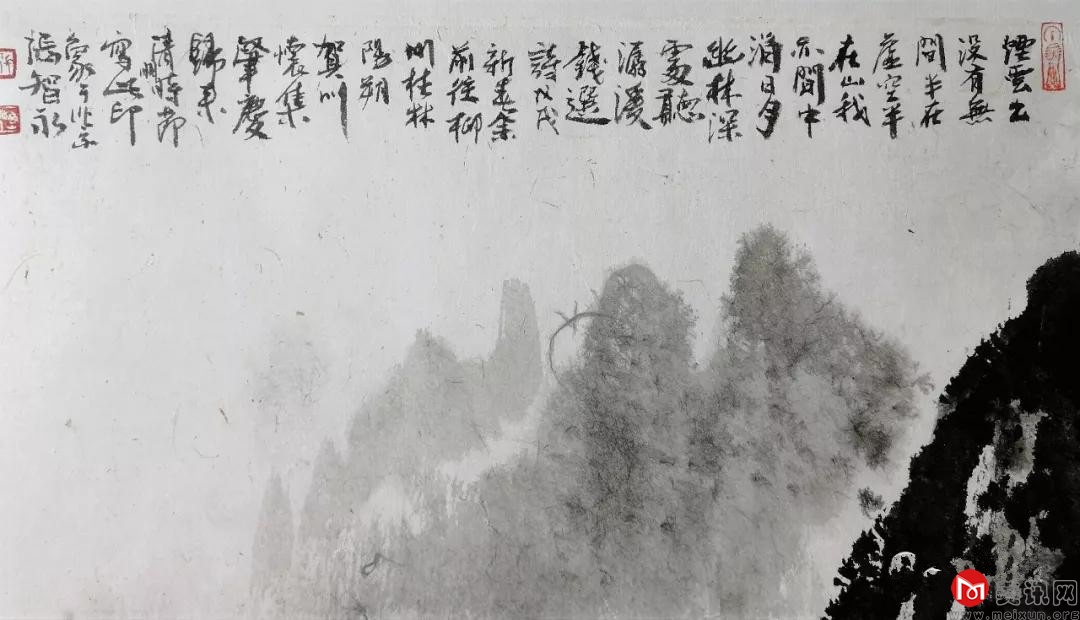 煙雲出
没有無
間半在
虛空半
在山我
亦間中
消日月
幽林深
處聽
潺湲
錢選
詩戊戌
新春余
前往柳
州桂林
陽朔
賀州
懷集
肇慶
歸來
清明時節
寫此印
象于北京
張智永
美讯网
www.meixun.org